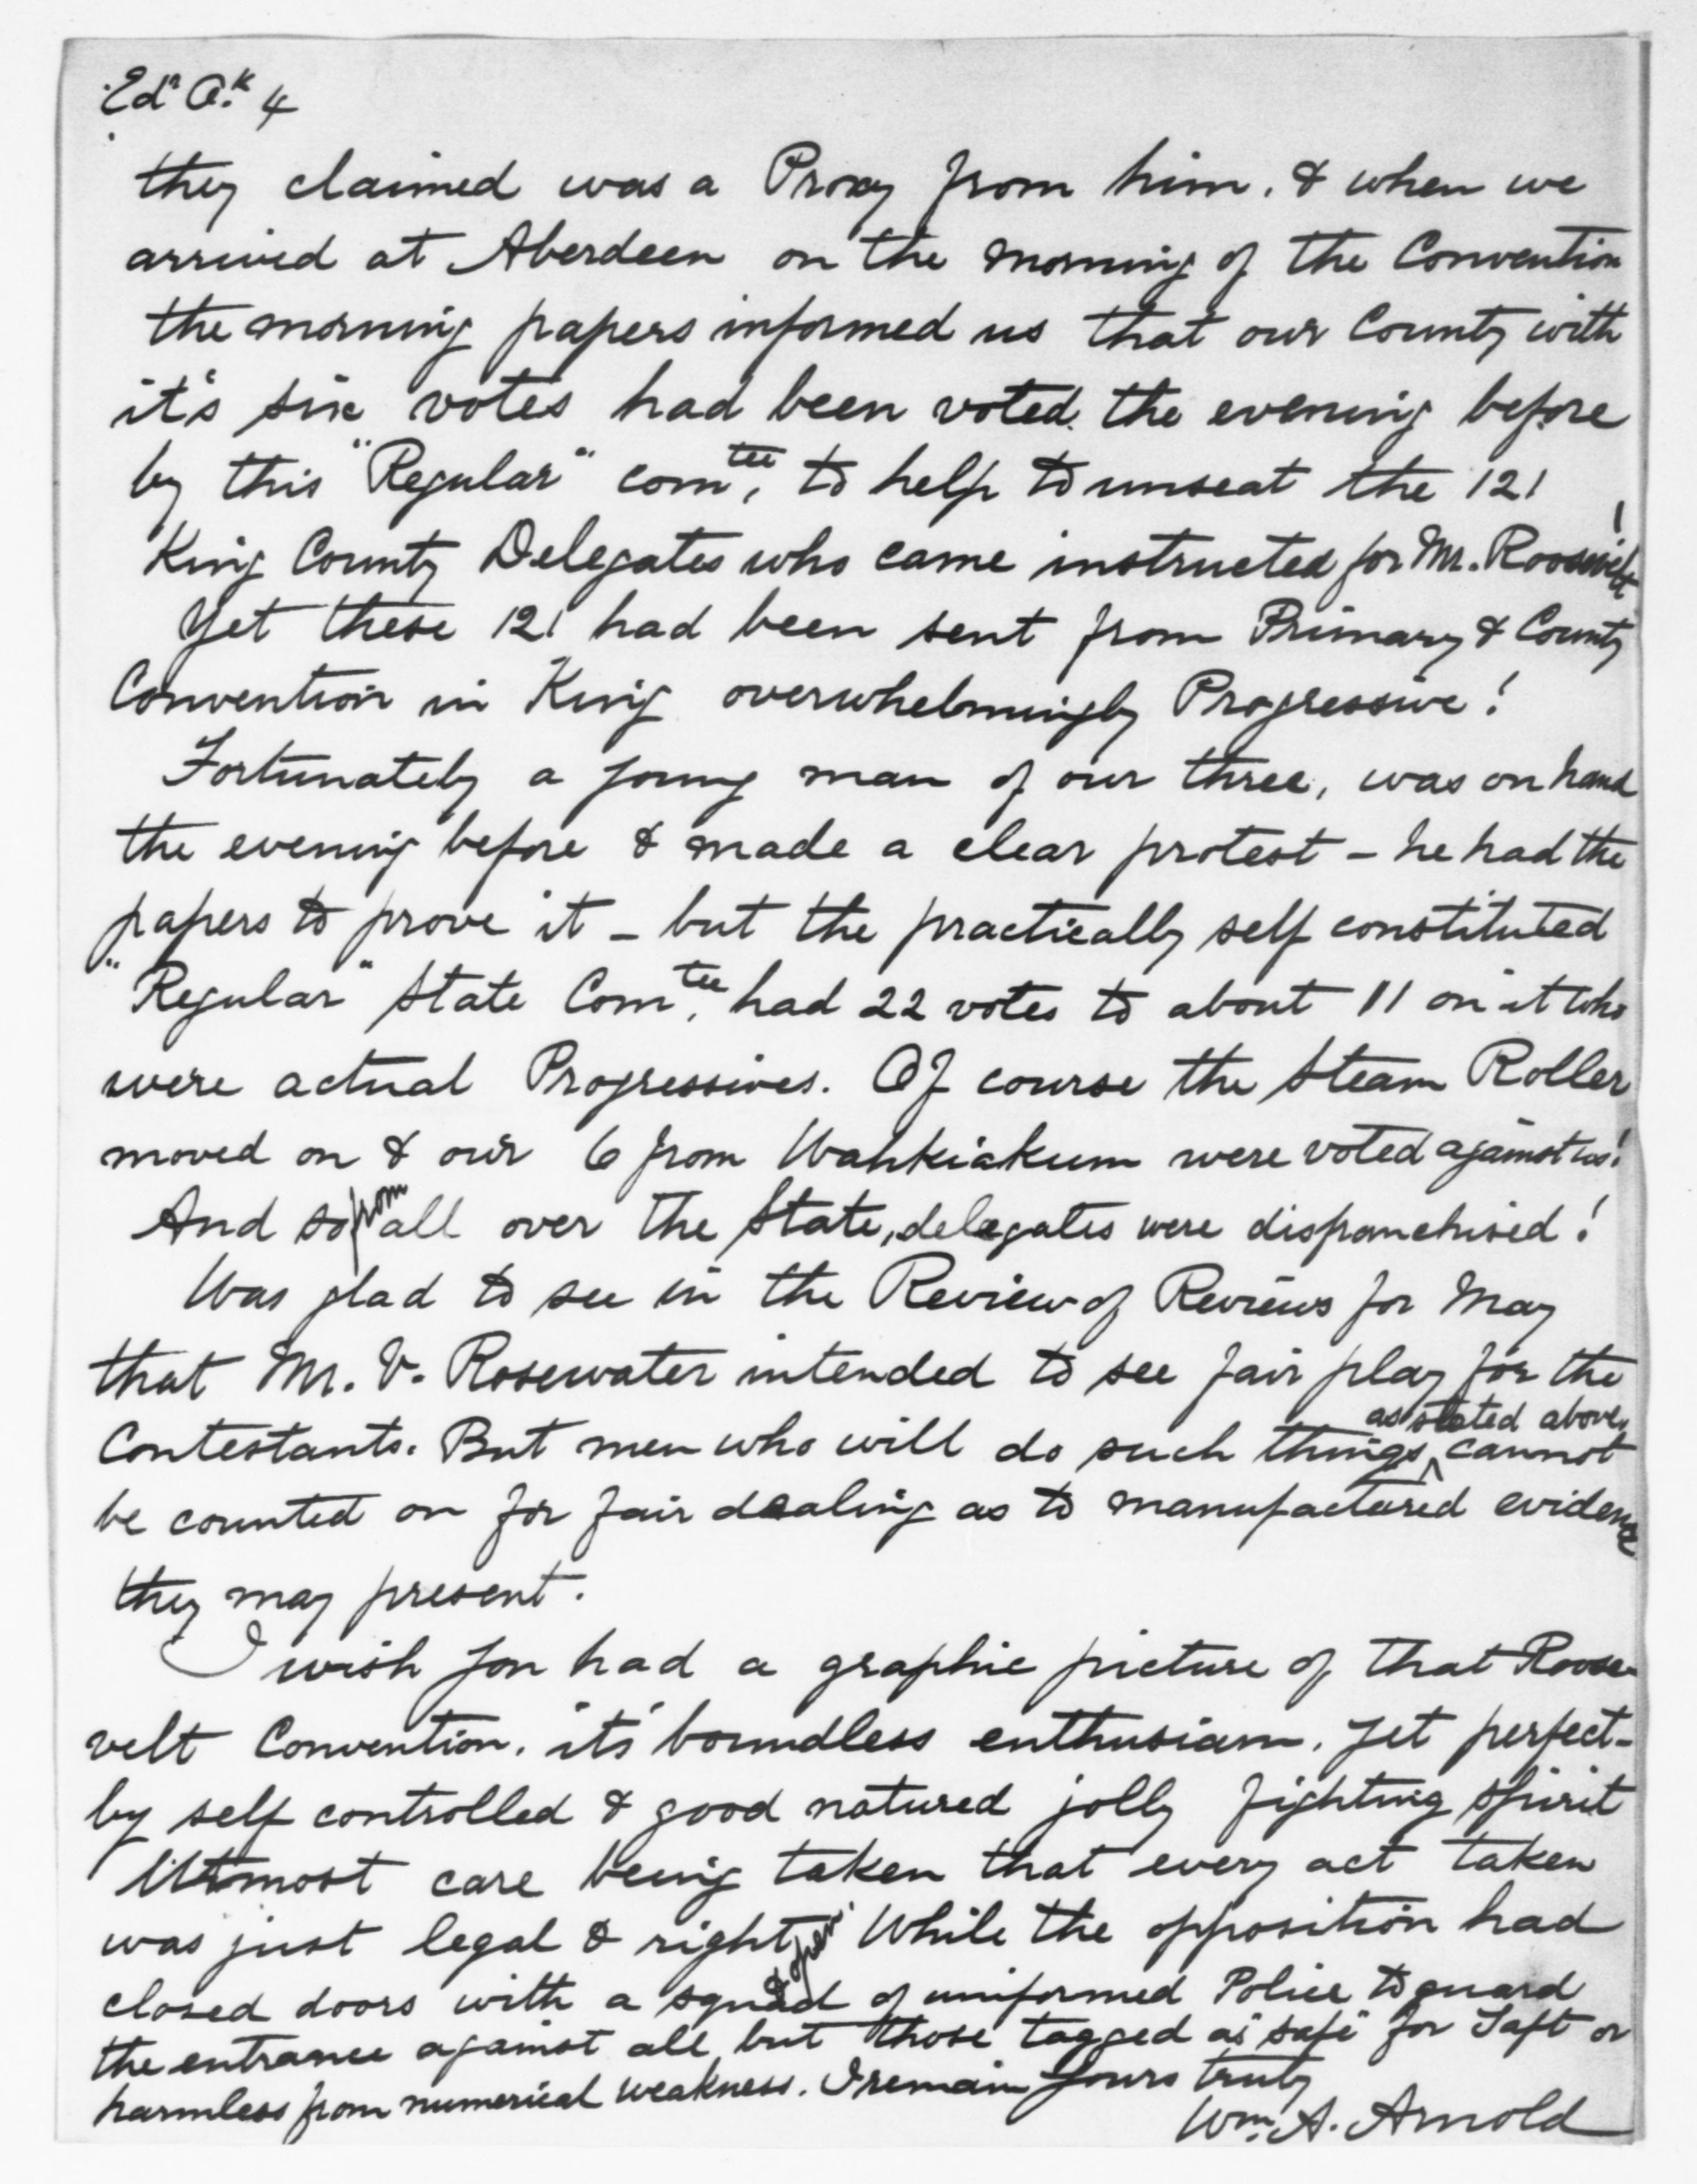 Edr O.k 4
they claimed was a Proxy from him. & when we
arrived at Aberdeen on the morning of the Convention
the morning papers informed us that our County with
it's six votes had been voted the evening before
by this "Regular" comtee, to help to unseat the 121
King County Delegates who came instructed for Mr. Roosevelt!
Yet these 121 had been sent from Primary & County
Convention in King overwhelmingly Progressive!
Fortunately a young man of our three, was on hand
the evening before & made a clear protest – he had the
papers to prove it – but the practically self constituted
"Regular" State Comtee, had 22 votes to about 11 on it who
were actual Progressives. Of course the Steam Roller
moved on & our 6 from Wahkiakum were voted against us!
And so from all over the State, delegates were disfranchised!
Was glad to see in the Review of Reviews for May
that Mr. V. Rosewater intended to see fair play for the
Contestants. But men who will do such things as stated above, cannot
be counted on for fair dealing as to manufactured evidence
they may present.
I wish you had a graphic picture of that Roose-
velt Convention. it's boundless enthusiam. yet perfect-
ly self controlled & good natured jolly fighting spirit
Utmost care being taken that every act taken
was just legal & right & open. While the opposition had
closed doors with a squad of uniformed Police to guard
the entrance against all but those tagged as safe for Taft or
harmless from numerical weakness. I remain yours truly
Wm. A. Arnold